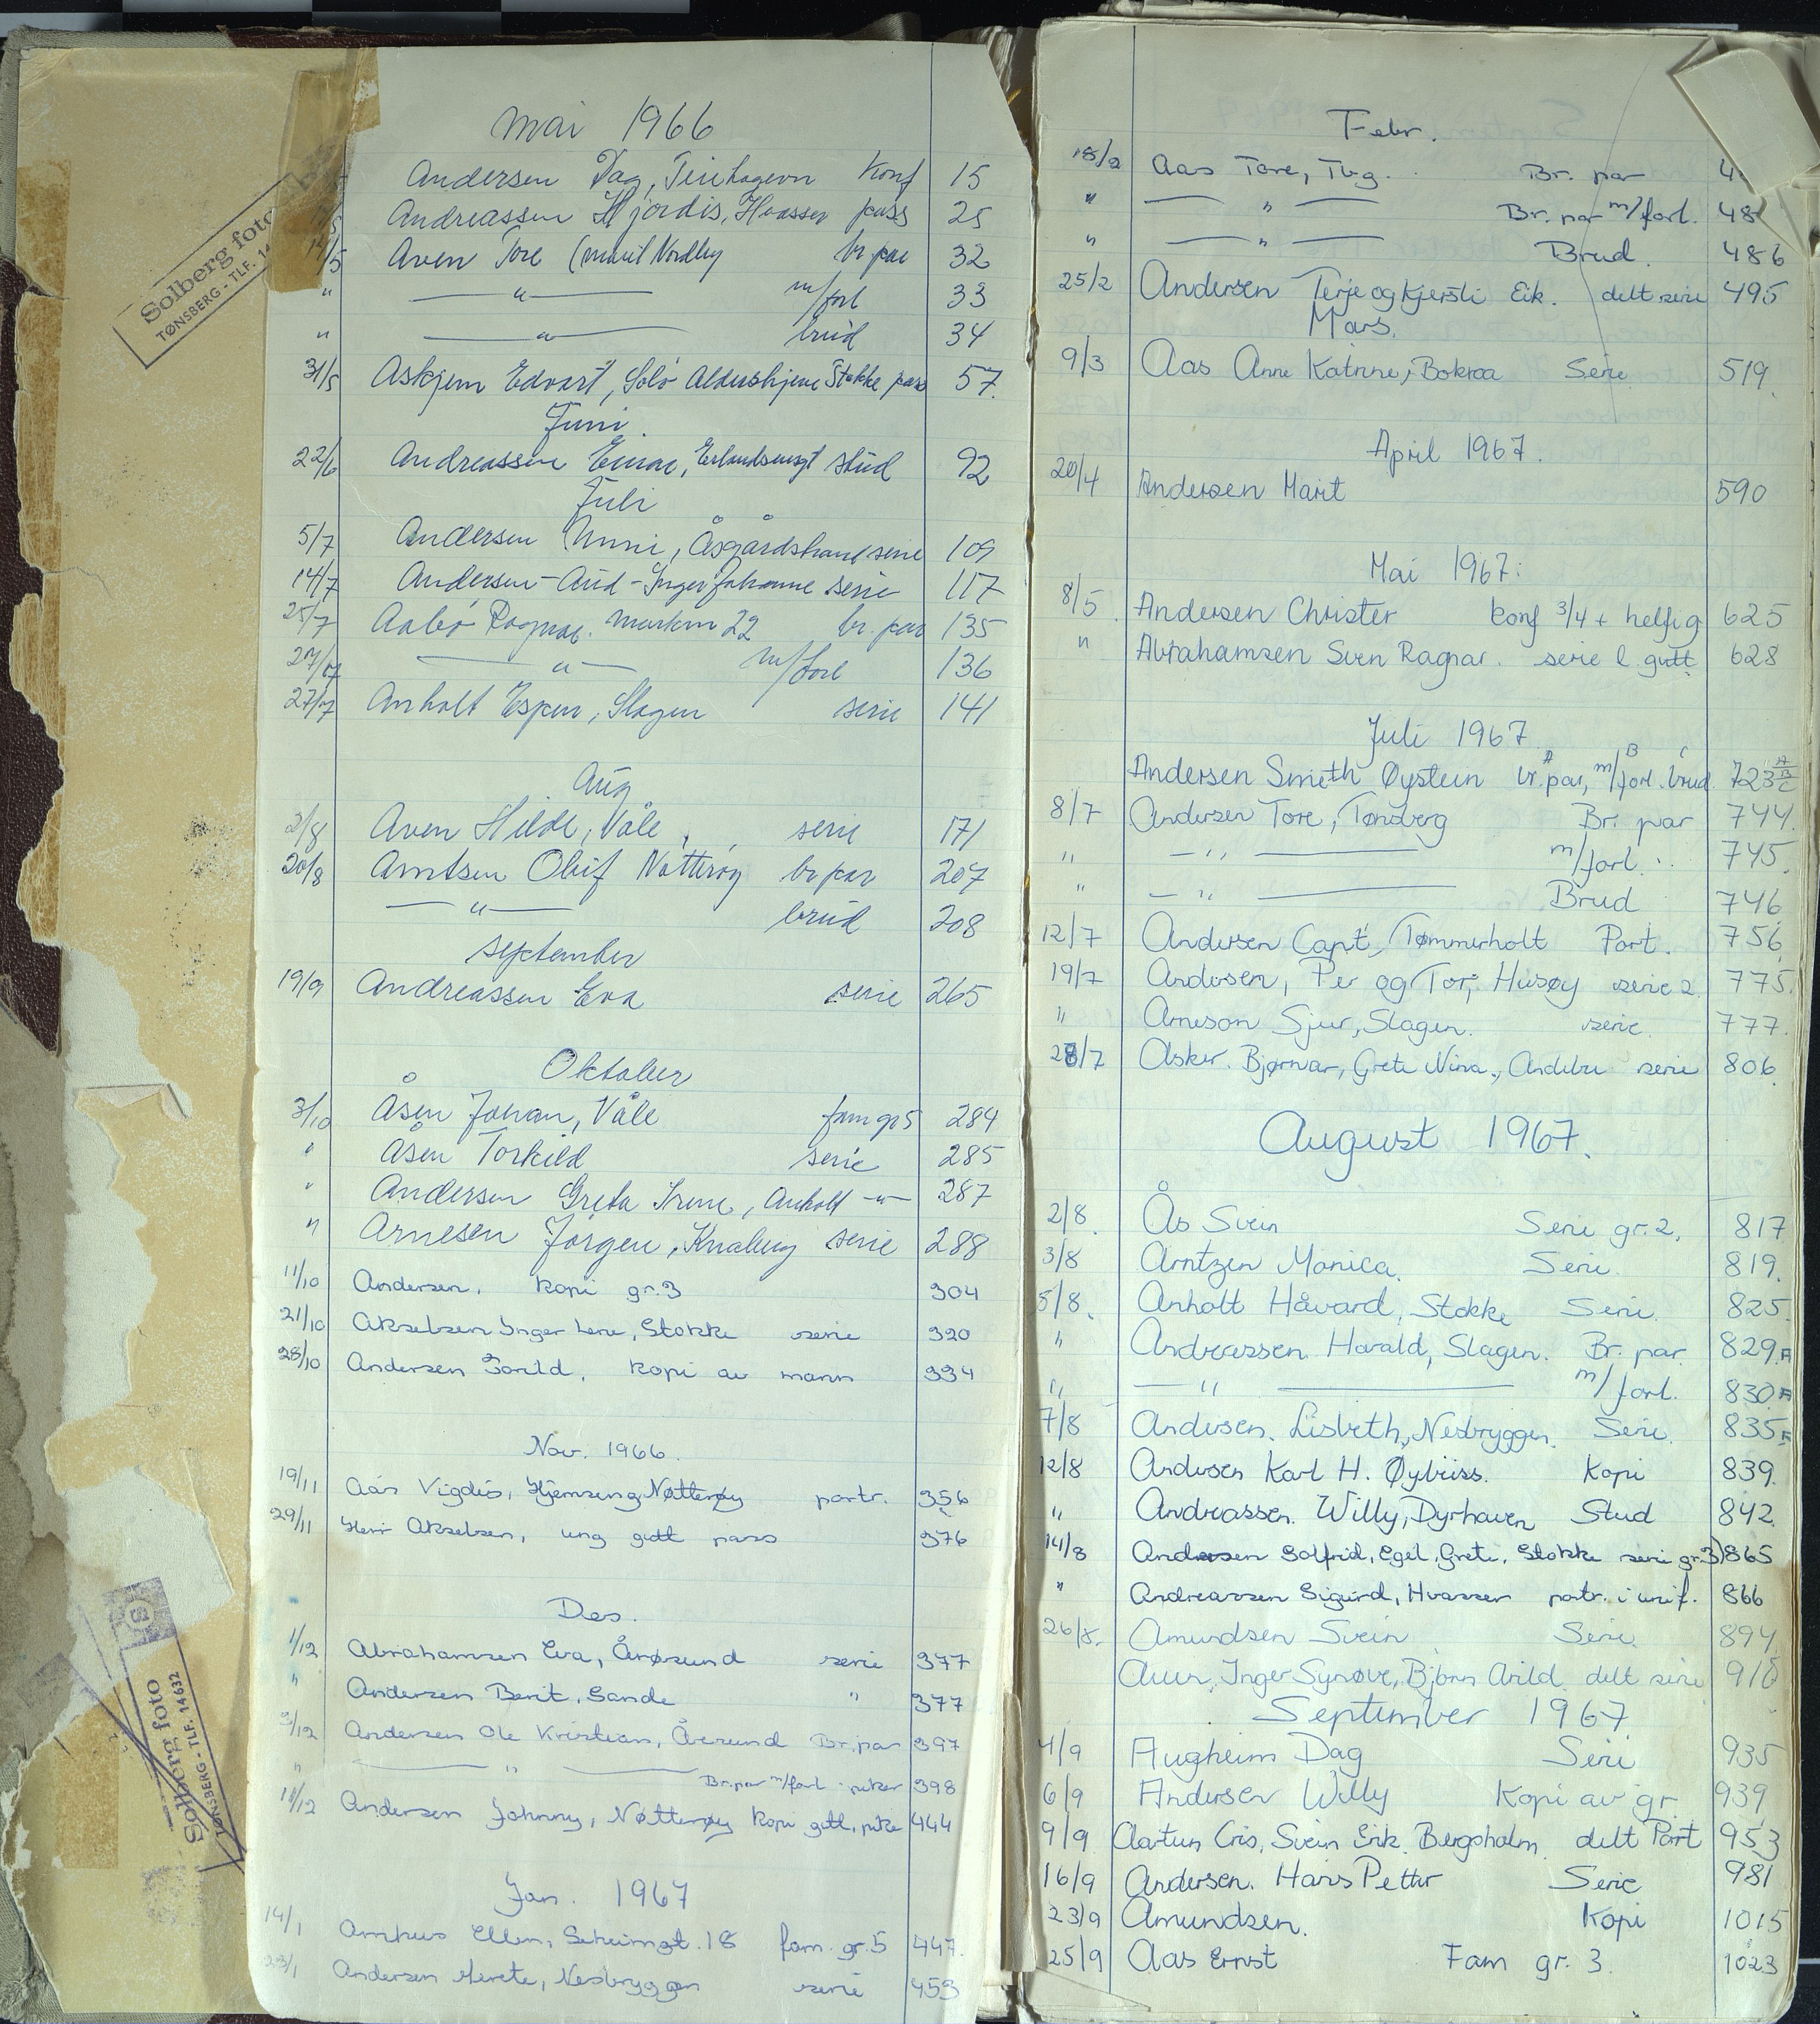 Solberg foto
TØNSBERG - TLF. 14
Solberg foto
TØNSBERG - TLF. 14632
Mai 1966
Andersen Dag, konf 15
Andreassen Hjørdis, Hvasser pass 25
14/5 Aven Tore (Marit Nordby br par 32
" — " — m/forl 33
" — " — brud 34
31/5 Askjem Edvart, Solø Aldershjem Stokke pass 57.
Juni.
22/6 Andreassen Einar, Erlandsensgt stud 92
Juli
5/7 Andersen Unni, Åsgårdstrand serie 109
14/7 Andersen - Aud - Inger Johanne serie 117
25/7 Aabø Ragnar. Marken 22 br. par 135
27/7 — " — m/forl 136
27/7 Anholt Espen, Slagen serie 141
Aug
2/8 Aven Hilde, Våle, serie 171
20/8 Arntsen Oluf Nøtterøy br par 207
— " — brud 208
September
19/9 Andreassen Eva serie 265
Oktober
3/10 Åsen Johan, Våle fam gr 5 284
" Åsen Torkild serie 285
" Andersen Greta Irene, Anholt — " — 287
" Arnesen Jørgen, serie 288
11/10 Andersen, kopi gr. 3 304
21/10 Akselsen Inger Lene, Stokke serie 320
28/10 Andersen Torild, kopi av mann 334
Nov. 1966.
19/11 Aas Vigdis, Nøtterøy portr. 356
29/11 Herr Akselsen, ung gutt pass 376
Des.
1/12 Abrahamsen Eva, Årøsund serie 377
" Andersen Berit, Sande " 377
3/12 Andersen Ole Kristian, Årøsund Br.par 397
" — " — Br.par m/forl. piker 398
Andersen Johnny, Nøtterøy kopi gutt, pike 444
Jan. 1967
14/1 Ellen, 18 fam. gr. 5 447.
Andersen Merete, Nesbryggen serie 453
Febr.
18/2 Aas Tore, Tbg. Br. par
" — " — Br. par m/forl. 48
" — " — Brud. 486
25/2 Andersen Terje og Kjersti Eik. delt serie 495
Mars.
9/3 Aas Anne Katrine, Serie 519.
April 1967.
20/4 Andersen Marit 590
Mai 1967:
8/5 Andersen Christer konf 3/4 + helfig 625
" Abrahamsen Sven Ragnar. serie l. gutt. 628
Juli 1967
A B C
Andersen Smith Øystein br.par, m/forl. brud. 723 A B C
8/7 Andersen Tore, Tønsberg Br. par 744.
" — " — m/forl. 745.
" — " — Brud 746
12/7 Andersen Capt, Tømmerholt Port. 756
19/7 Andersen, Per og Tor, Husøy serie 2 775.
" Arneson Sjur, Slagen. serie. 777.
28/7 Asker. Bjørnar, Grete Nina, Andebu serie 806
August 1967.
2/8. Ås Svein Serie gr. 2, 817
3/8 Arntzen Monica. Serie 819.
5/8. Anholt Håvard, Stokke Serie. 825.
" Andreassen Harald, Slagen. Br. par. 829 A
" — " — m/forl. 830 A
7/8 Andersen. Lisbeth, Nesbryggen. Serie. 835
12/8 Andersen Karl H. Kopi 839.
" Andreassen. Willy, Dyrhaven Stud 842.
14/8 Andersen Solfrid, Egil, Grete, Stokke serie gr. 3) 865
" Andreassen Sigurd, Hvasser portr. i unif. 866
26/8. Amundsen Svein Serie 894.
Aun, Inger Synøve, Bjørn Arild delt serie 910
September 1967
4/9 Augheim Dag Serie 935
6/9 Andersen Willy Kopi av gr. 939
9/9 Aartun Cris, Svein Erik. Bergsholm. delt Port 953
16/9 Andersen. Hans Petter Serie 981
23/9 Amundsen. Kopi 1015
25/9 Aas Ernst Fam gr. 3. 1023